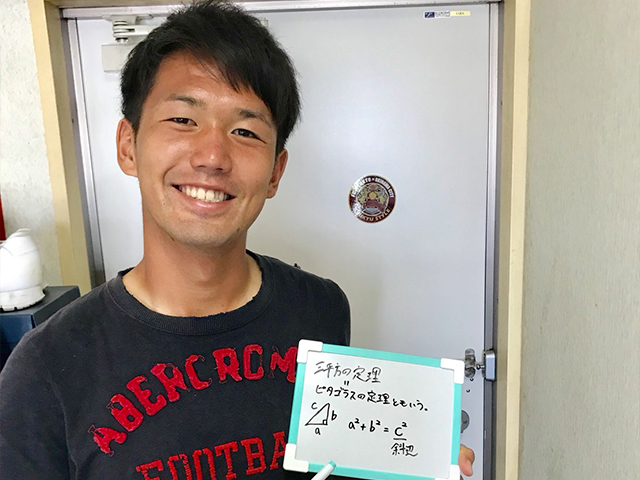 ABERCROM
FOOTBA
三平方の定理
"
ピタゴラスの定理ともいう。
c
b
a
a²+b²=c²
斜辺